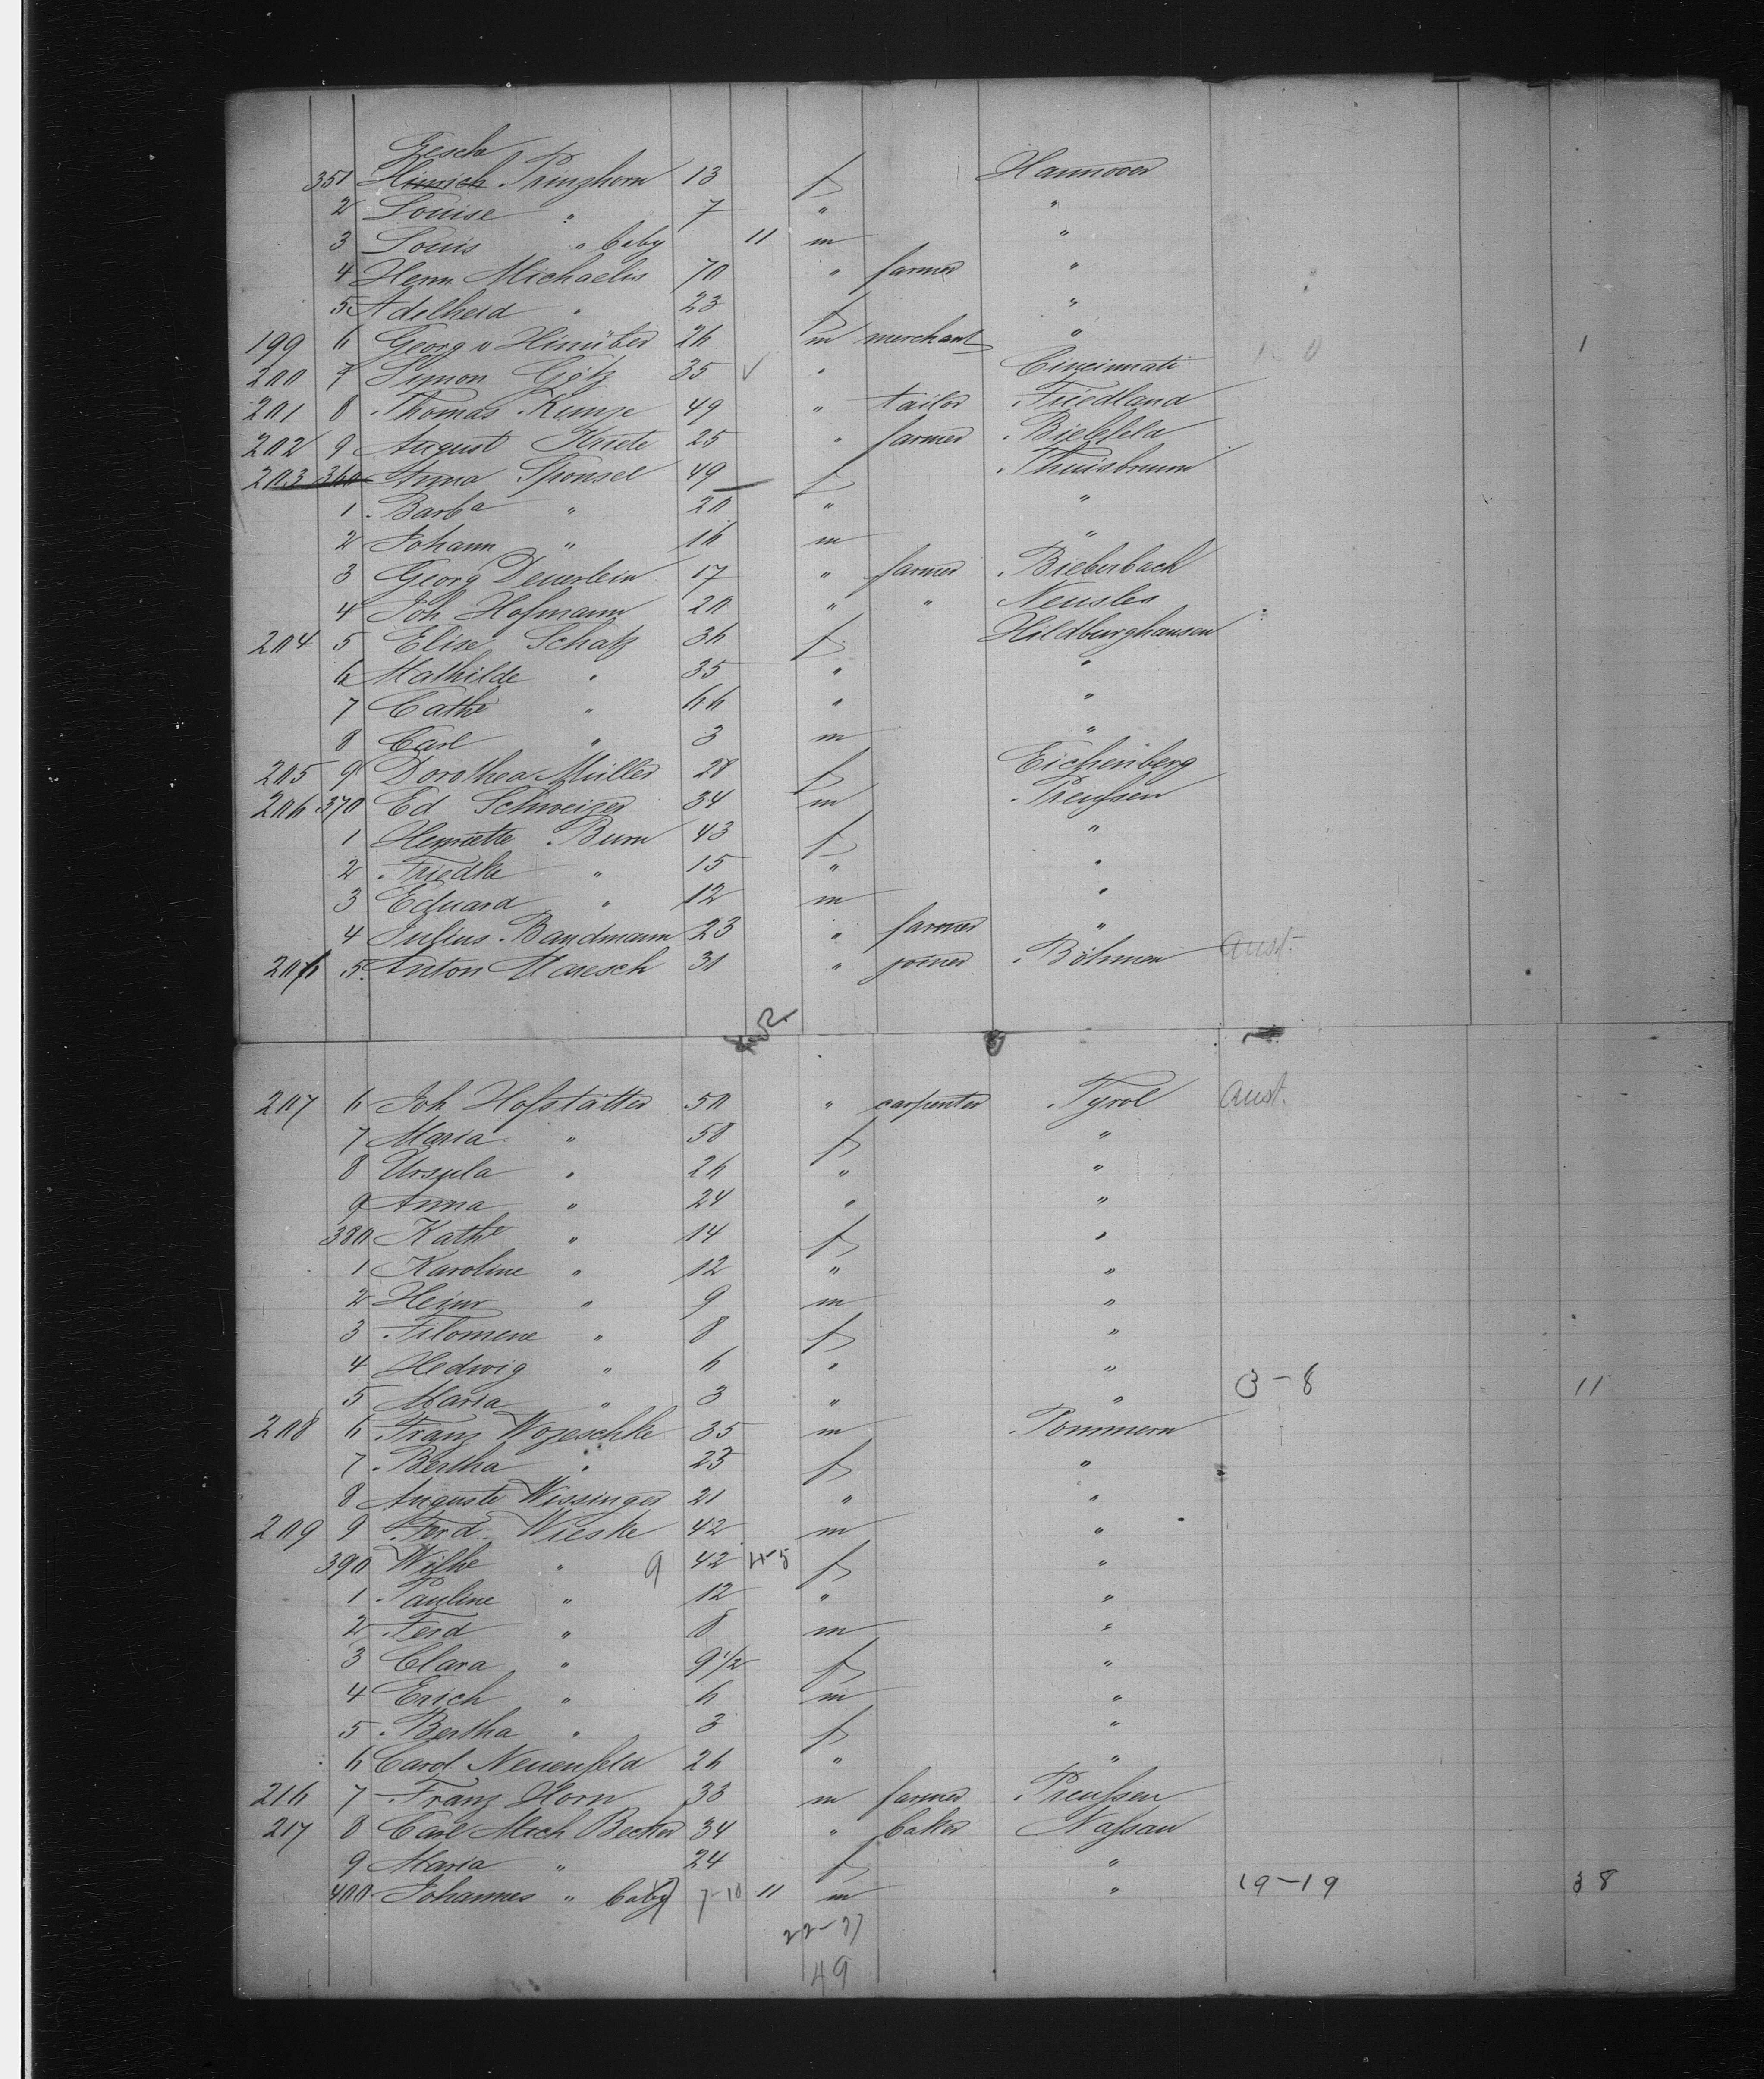 Gesch
351 Hinrich Prinzhorn 13 f Hannover
2 Louise " 7 " "
3 Louis " baby 11 m "
4 Herm. Michaelis 70 " farmer "
5 Adelheid " 23 f "
199 6 Georg v Hinüber 26 m merchant " 1
200 7 Simon Götz 35 ✓ " Cincinnati 1-0
201 8 Thomas Kunze 49 " tailor Friedland
202 9 August Kriete 25 " farmer Bielefeld
203 360 Anna Sponsel 49 f Thuisbrunn
1 Barba " 20 " "
2 Johann " 16 m "
3 Georg Deuerlein 17 " farmer Bieberbach
4 Joh Hofmann 20 " " Neusles
204 5 Elise Schatz 36 f Hildburghausen
6 Mathilde " 35 " "
7 Cathe " 66 " "
8 Carl " 3 m "
205 9 Dorothea Müller 28 f Eichenberg
206 370 Ed Schweizer 34 m Preußen
1 Henriette Burn 43 f "
2 Friedke " 15 " "
3 Eduard " 12 m "
4 Julius Bandmann 23 " farmer "
206 5 Anton Maresch 31 " joiner Böhmen Aust.
207 6 Joh Hofstätter 50 " carpenter Tyrol Aust.
7 Maria " 50 f "
8 Ursula " 26 " "
9 Anna " 24 " "
380 Kathe " 14 f "
1 Karoline " 12 " "
2 Heinr " 9 m "
3 Filomene " 8 f "
4 Hedwig " 6 " "
5 Maria " 3 " " 3-8 11
208 6 Franz Wozeschke 35 m Pommern
7 Bertha " 23 f "
8 Auguste Wissinger 21 " "
209 9 Ferd. Wieske 42 m "
390 Wilhe " 9 42 4-5 f "
1 Pauline " 12 " "
2 Ferd " 8 m "
3 Clara " 9 1/2 f "
4 Erich " 6 m "
5 Bertha " 3 f "
6 Carol Neuenfeld 26 " "
216 7 Franz Horn 33 m farmer Preußen
217 8 Carl Mich Becker 34 " baker Naßau
9 Maria " 24 f "
400 Johannes " baby 7-10 11 m " 19-19 38
22-27
49